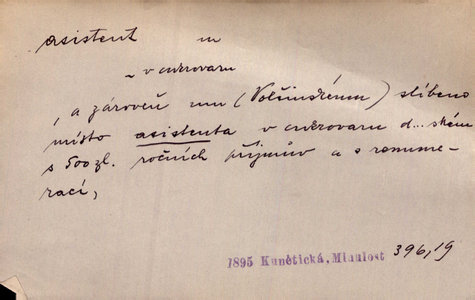 asistent m
~ v cukrovaru
, a zároveň mu (Volšinskému) slíbeno
místo asistenta v cukrovaru d...ském
s 500 zl. ročních příjmův a s remune-
rací,
1895 Kunětická, Minulost 396,19